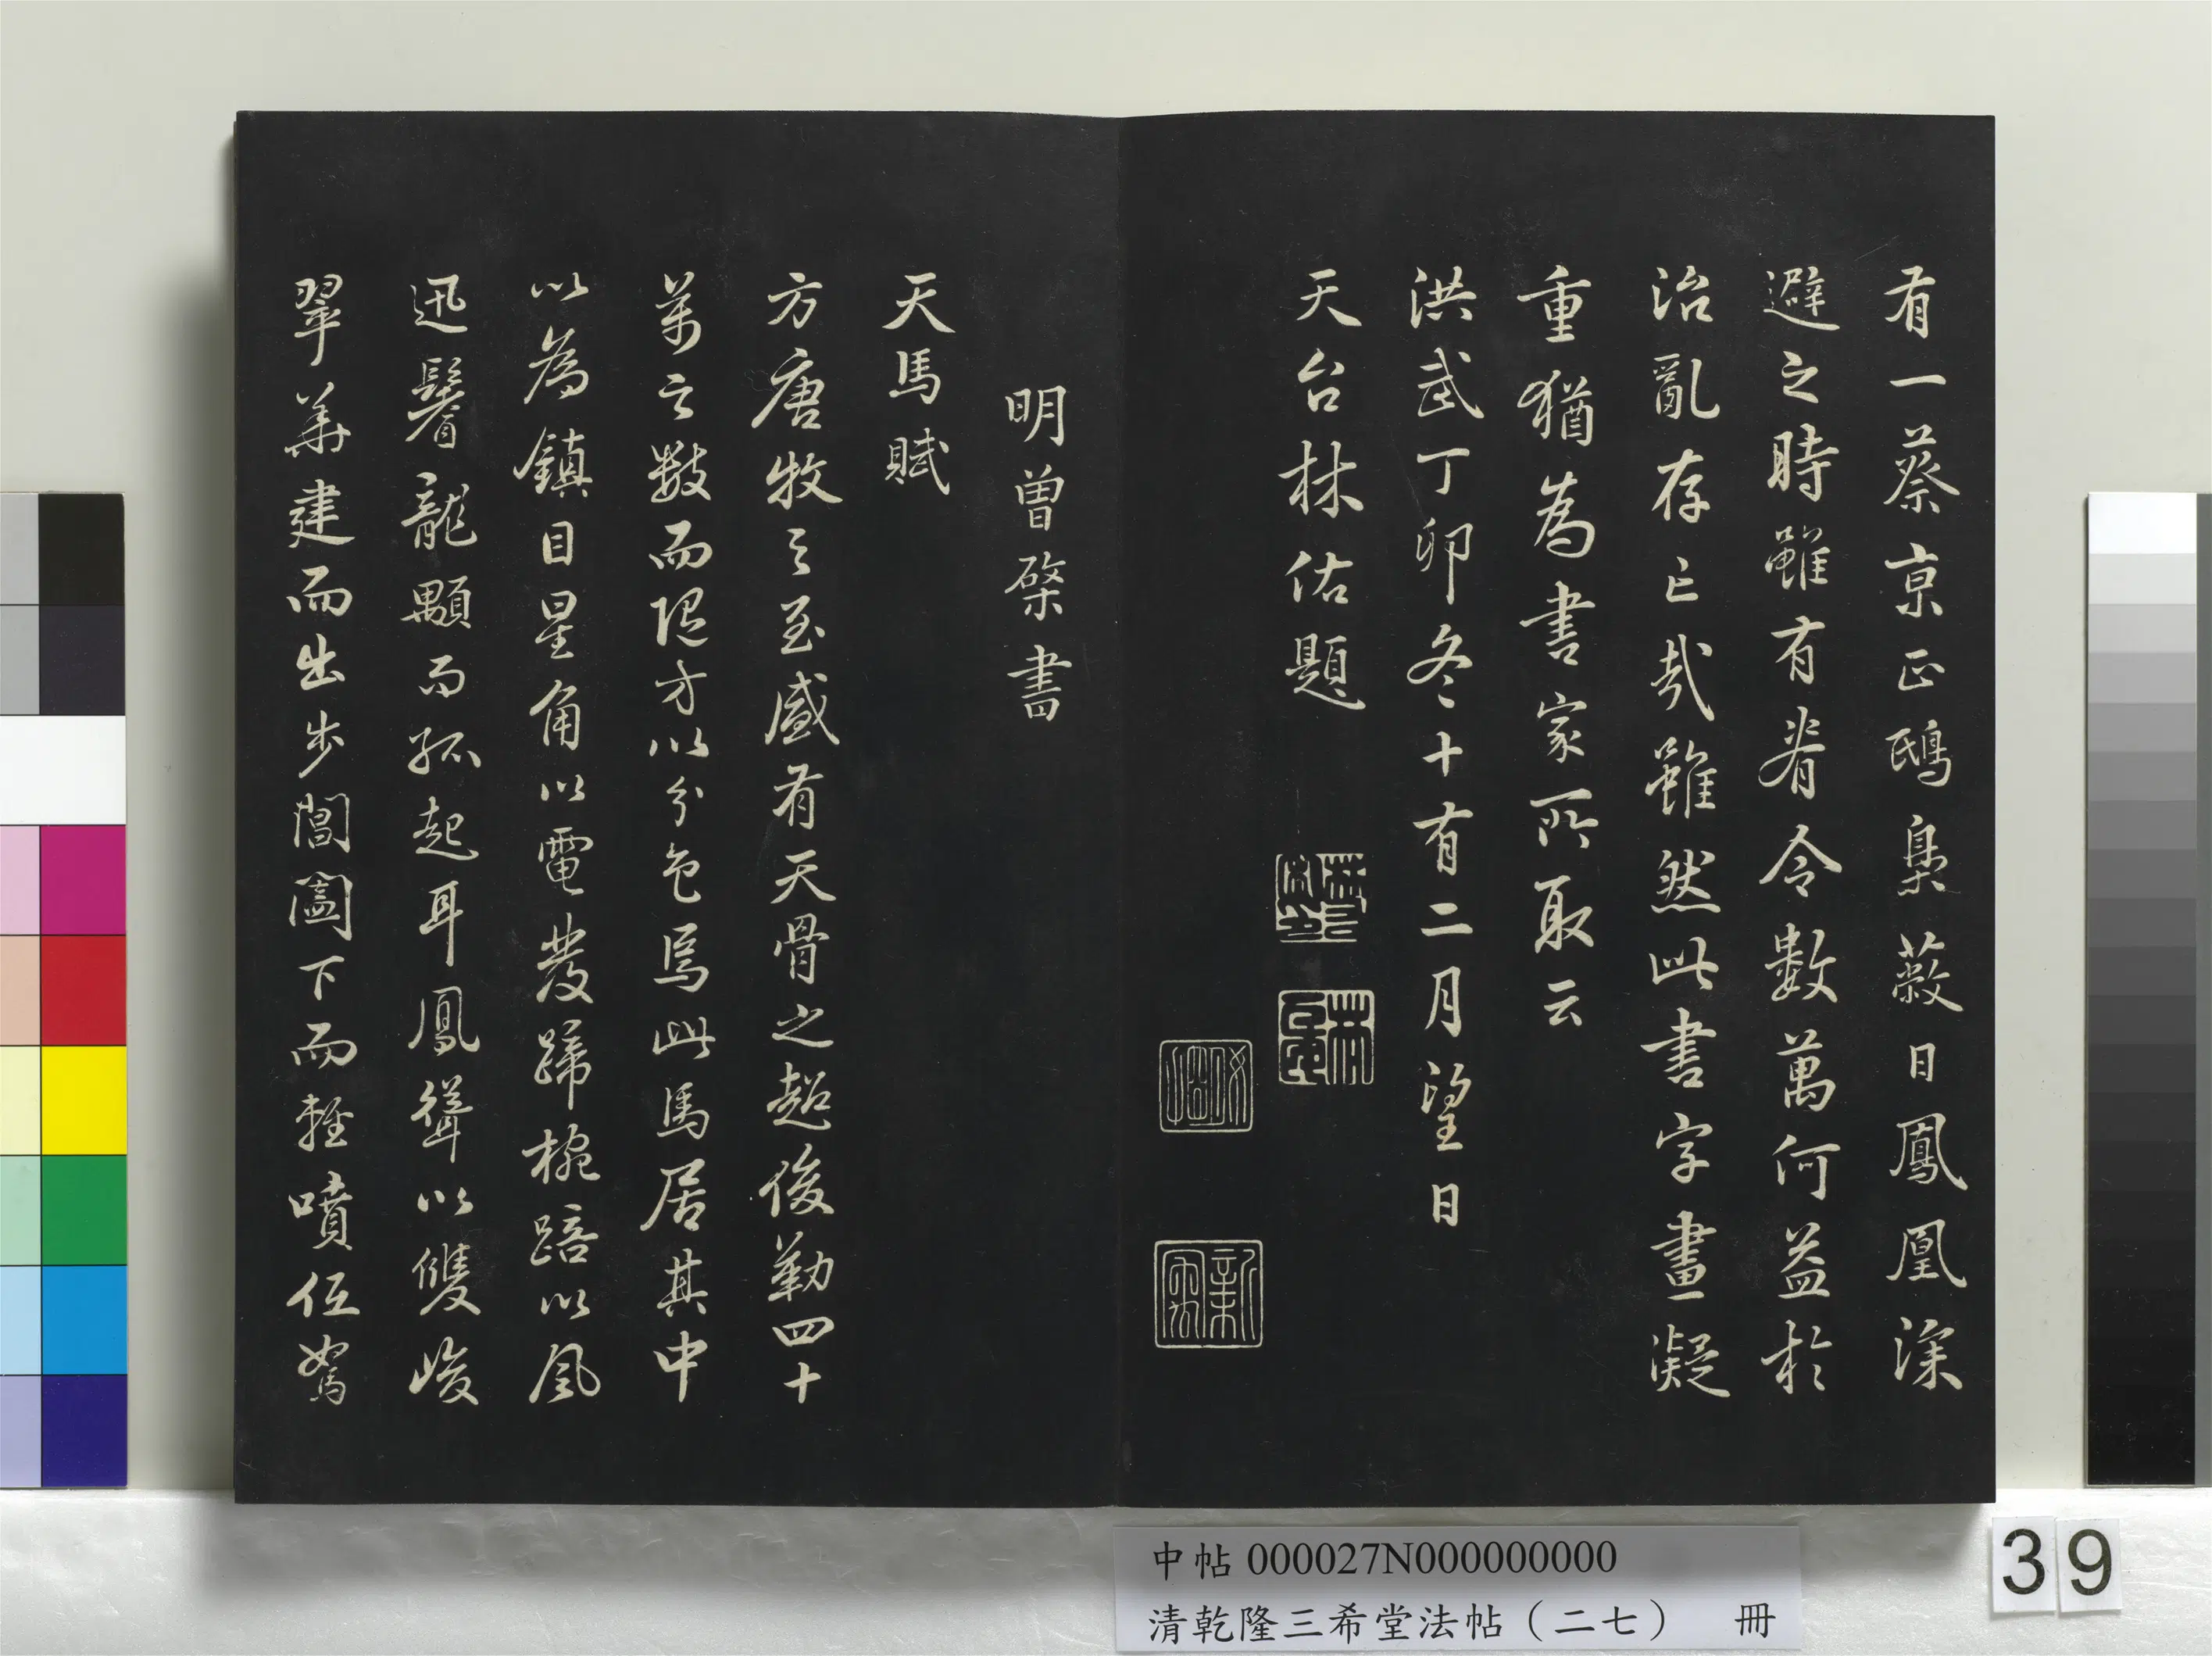 有一蔡京正鴟梟蔽日鳳凰深
避之時雖有眷令數萬何益於
治亂存亡哉雖然此書字畫凝
重猶為書家所取云
洪武丁卯冬十有二月望日
天台林佑題
明曾棨書
天馬賦
方唐牧之至盛有天骨之超俊勒四十
萬之數而隨方以分色焉此馬居其中
以為鎮目星角以電發蹄椀踣以風
迅鬐龍顒而孤起耳鳳聳以雙峻
翠華建而出步閶闔下而輕噴低駑
中帖 000027N000000000
清乾隆三希堂法帖（二七） 冊
39